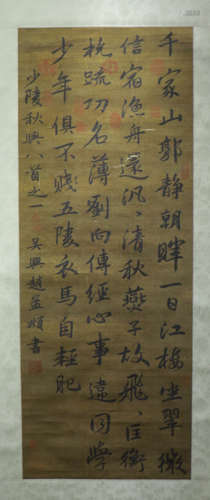 千家山郭靜朝暉一日江樓坐翠微
信宿漁舟還汎、清秋燕子故飛、匡衡
抗疏功名薄劉向傳經心事違同學
少年俱不賤五陵衣馬自輕肥
少陵秋興八首之一 吳興趙孟頫書